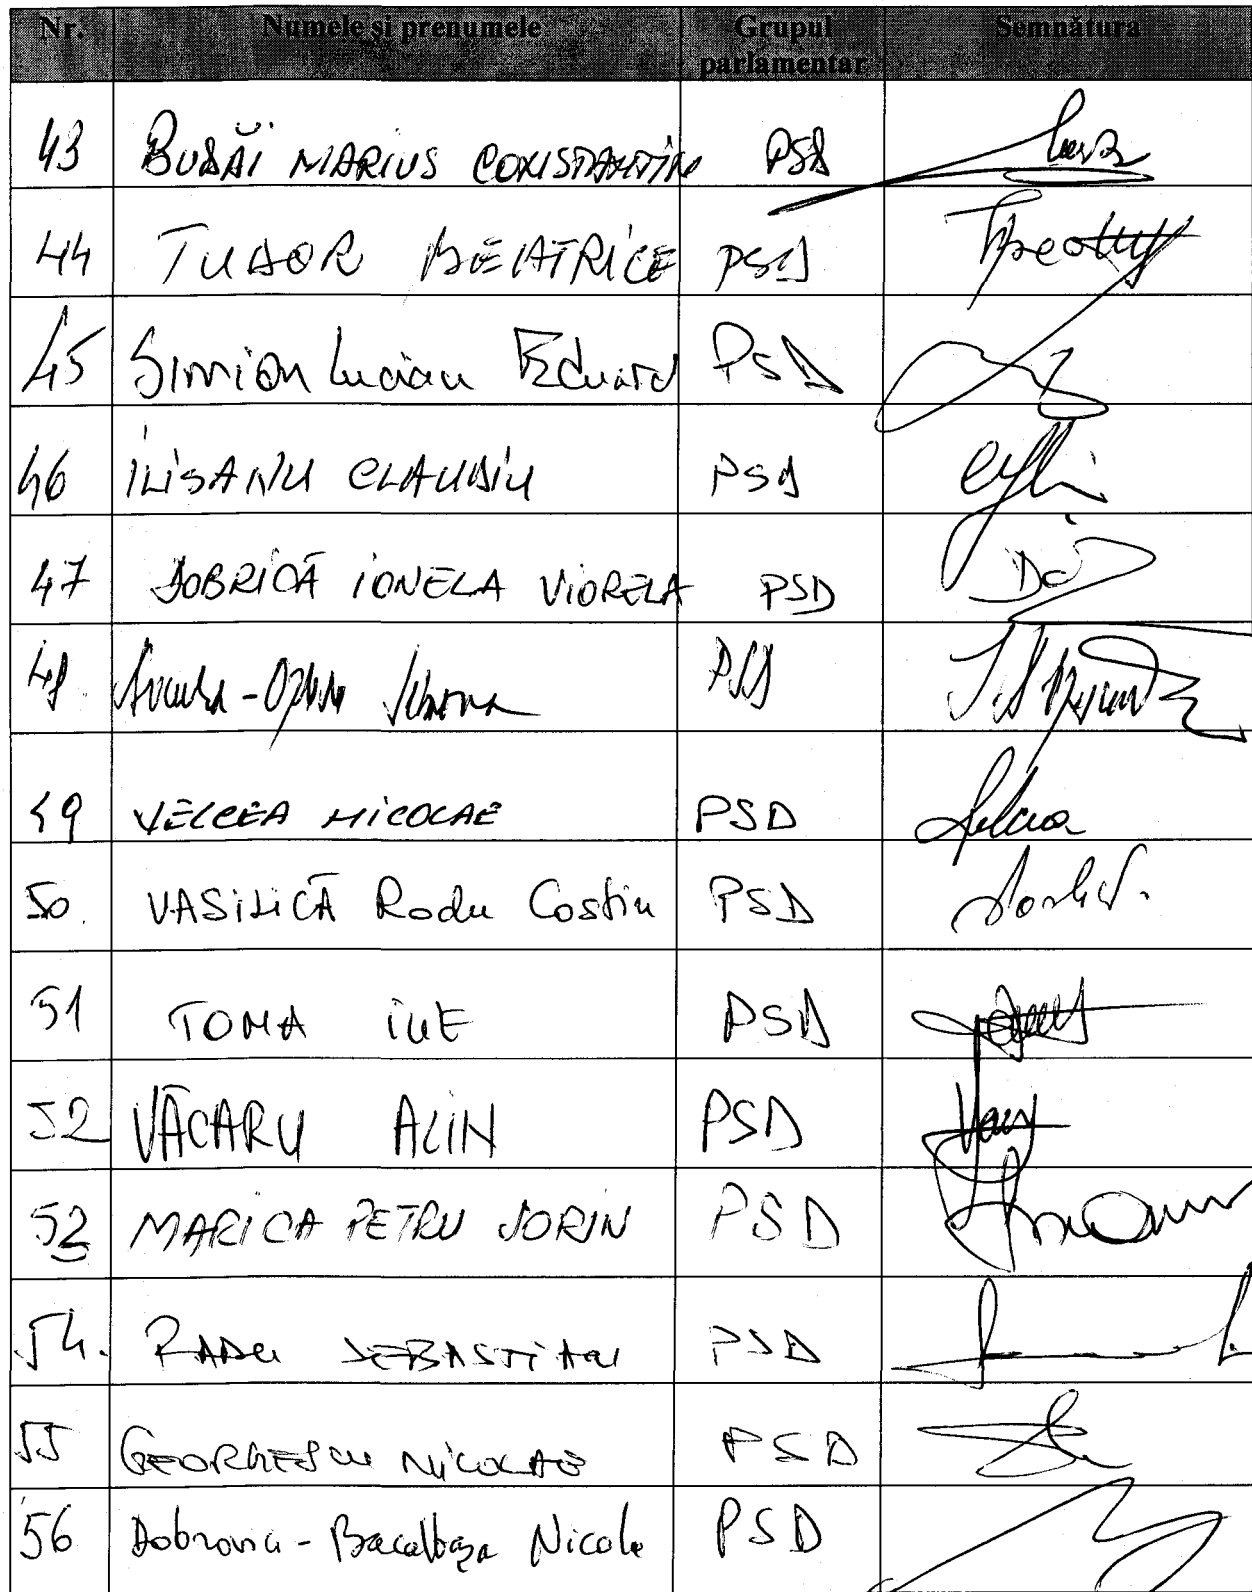 Nr. Numele și prenumele Grupul parlamentar Semnătura
43 BUDĂI MARIUS CONSTANTIN PSD
44 TUDOR BEIATRICE PSD
45 Simion Lucian Eduard PSD
46 ILISANU CLAUDIU PSD
47 DOBRICĂ IONELA VIORELA PSD
48. PSD
49 VELCEA NICOLAE PSD
50. VASILICĂ Radu Costin PSD
51 TOMA ILIE PSD
52 VĂCARU ALIN PSD
53 MARICA PETRU SORIN PSD
54. RADU SEBASTIAN PSD
55 GEORGESCU NICOLAE PSD
56 Dobrovici-Bacalbașa Nicolae PSD